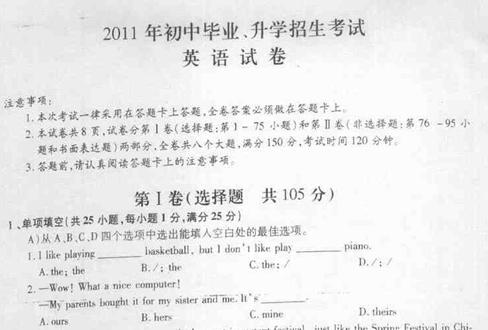 2011年初中毕业、升学招生考试
英语试卷
注意事项:
1.本次考试一律采用在答题卡上答题,全卷答案必须做在答题卡上。
2.本试卷共8页,试卷分第Ⅰ卷(选择题:第1-75小题)和第Ⅱ卷(非选择题:第76-95小
题和书面表达题)两部分,全卷共八个大题,满分150分,考试时间120分钟。
3.答题前,请认真阅读答题卡上的注意事项。
第Ⅰ卷(选择题 共105分)
1、单项填空(共25小题,每小题1分,满分25分)
A)从A、B、C、D四个选项中选出能填入空白处的最佳选项。
1. I like playing ________ basketball, but I don't like play ________ piano.
A. the; the B. /; the C. the; / D. /; /
2. —Wow! What a nice computer!
—My parents bought it for my sister and me. It's ________.
A. ours B. hers C. mine D. theirs
festival, just like the Spring Festival in Chi-